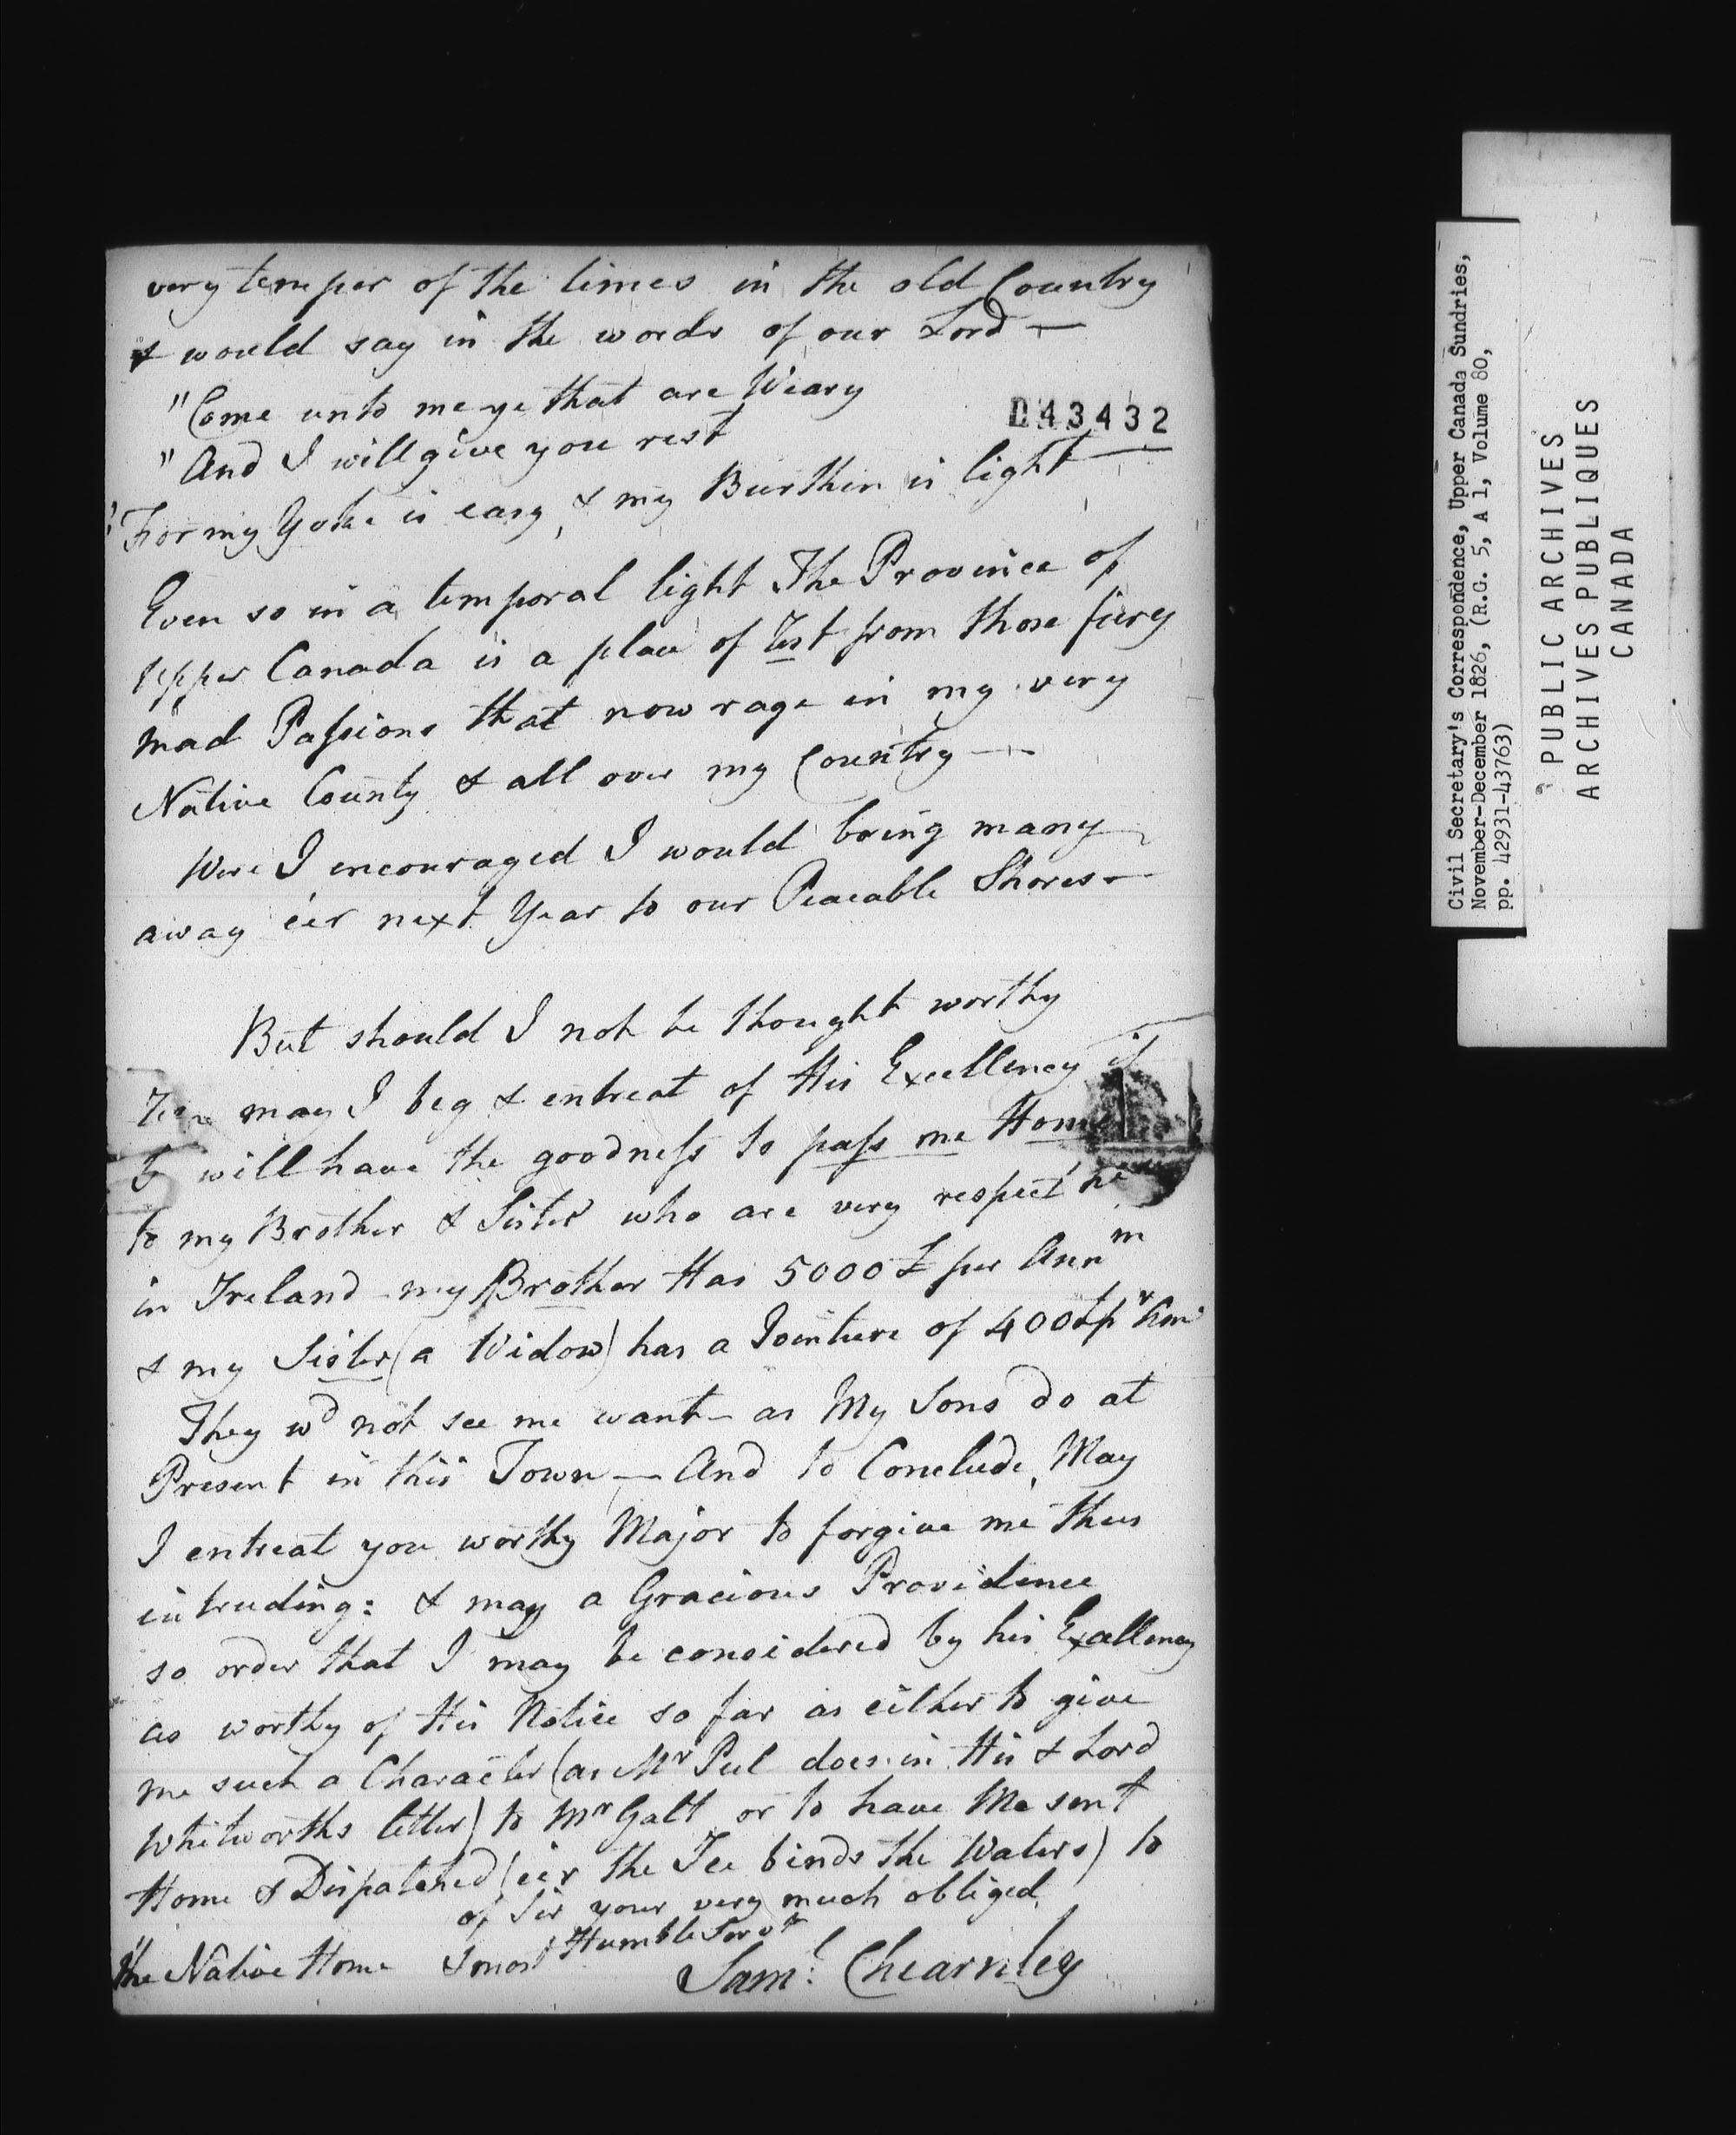 very temper of the times in the old Country
& would say in the words of our Lord —
"Come unto me ye that are Weary
"And I will give you rest
D43432
"For my Yoke is easy, & my Burthin is light —
Even so in a temporal light The Province of
Upper Canada is a place of Rest from those fiery
mad Passions that now rage in my very
Native County & all over my Country —
Were I encouraged I would bring many
away eer next Year to our Peaceable Shores —
But should I not be thought worthy
may I beg & entreat of His Excellency if
will have the goodness to pass me Home
to my Brother & Sister who are very respect
in Ireland - my Brother Has 5000£ per Annm
& my Sister (a Widow) has a Jointure of 400£ pr Ann
They wd not see me want — as My Sons do at
Present in this Town — And to Conclude, May
I entreat you worthy Major to forgive me thus
intruding: & may a Gracious Providence
so order that I may be considered by his Excellency
as worthy of His Notice so far as either to give
me such a Character (as Mr Peel does in His & Lord
Whitworths letter) to Mr Galt or to have Me sent
Home & Dispatched (eer the Ice binds the Waters) to
of Sir your very much obliged
& most Humble Servt
the Native Home
Saml: Chearnley
Civil Secretary's Correspondence, Upper Canada Sundries,
November-December 1826, (R.G. 5, A 1, Volume 80,
pp. 42931-43763)
PUBLIC ARCHIVES
ARCHIVES PUBLIQUES
CANADA